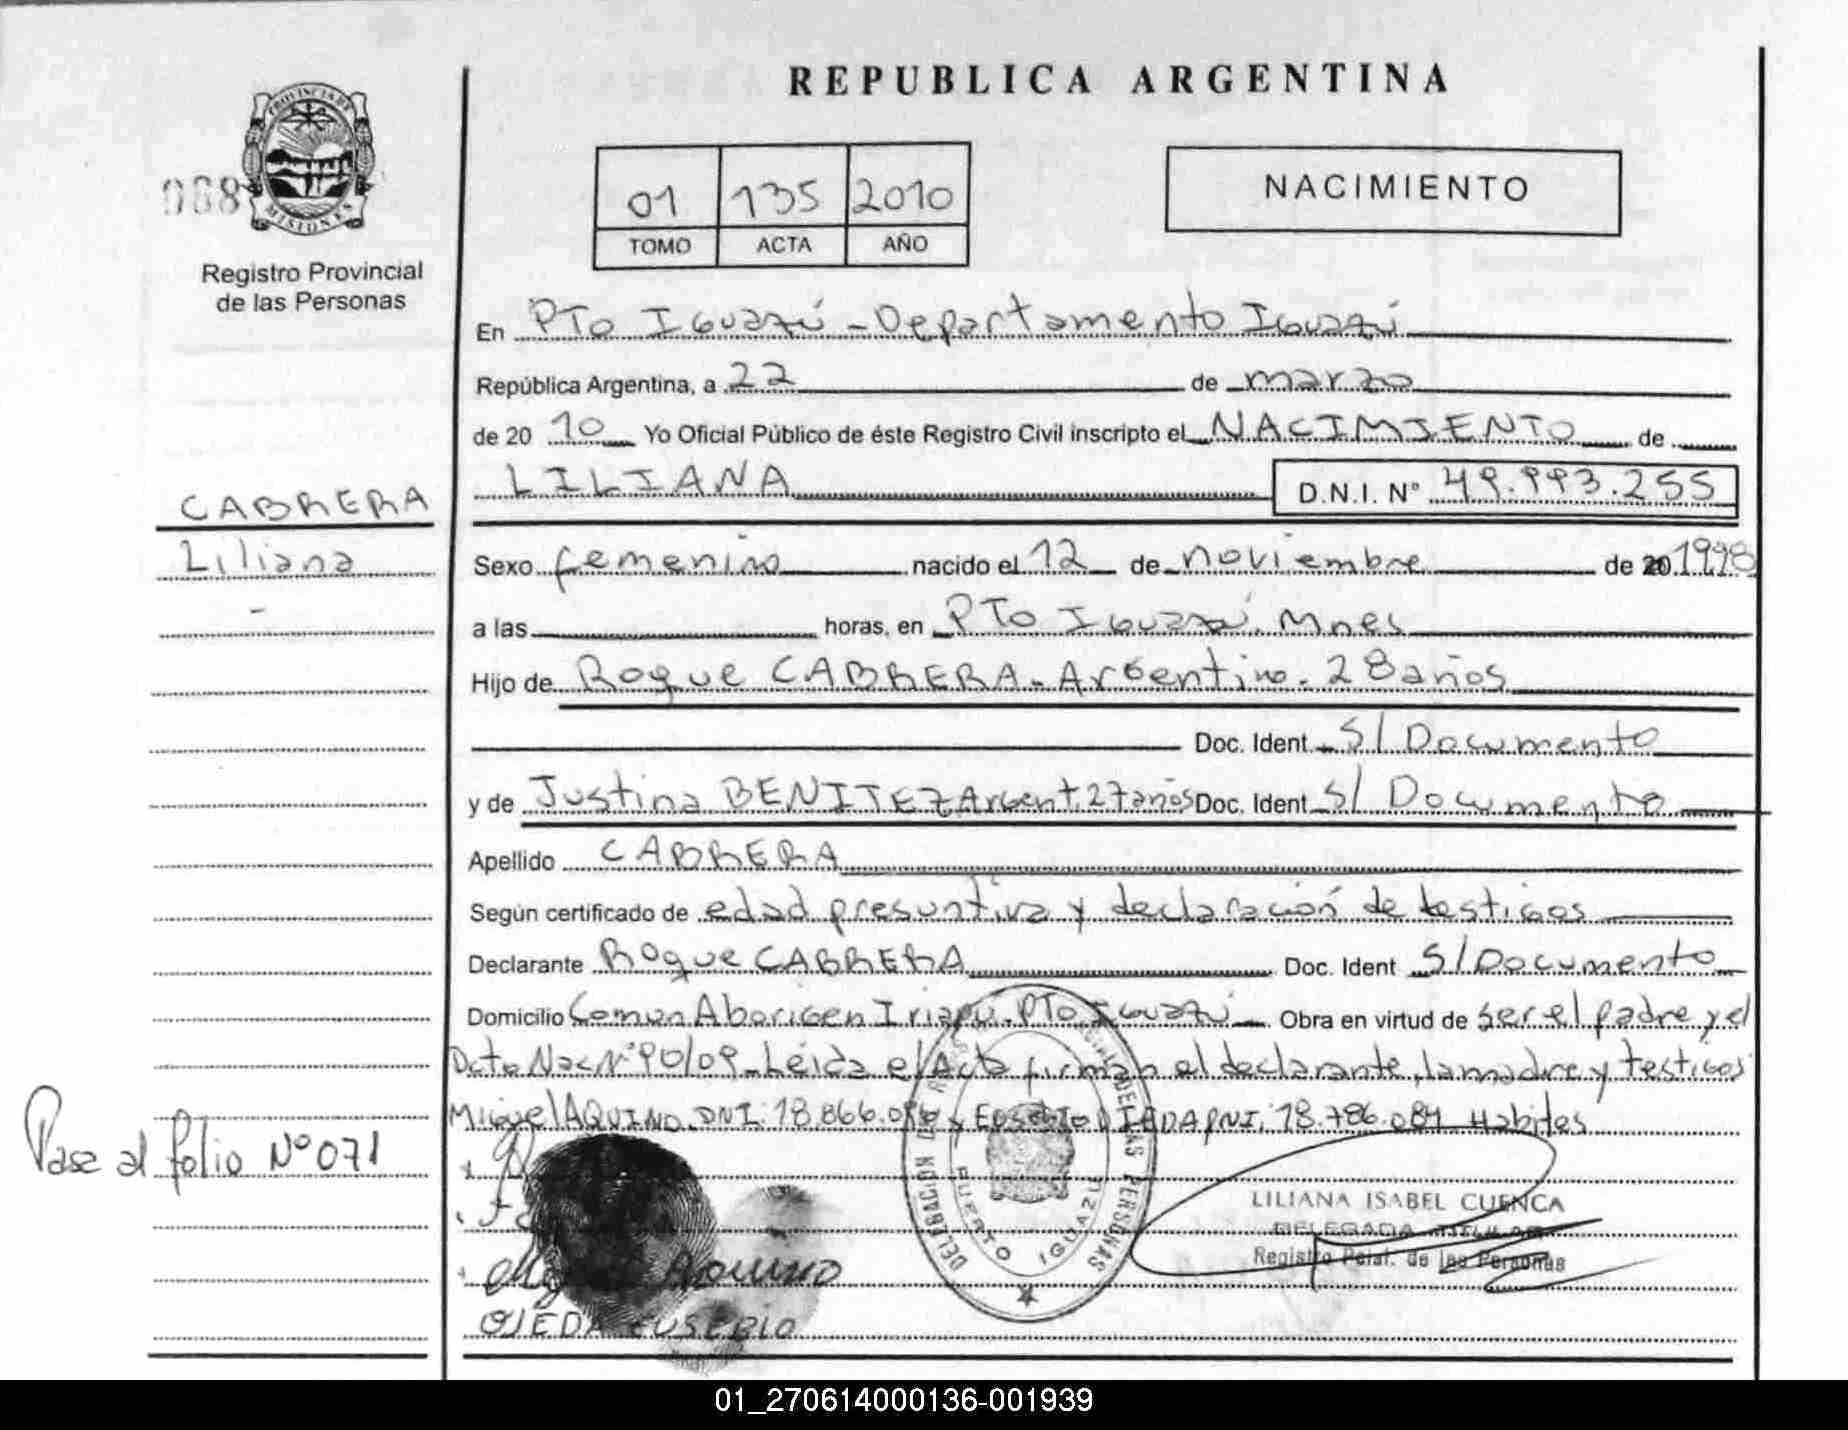 REPUBLICA ARGENTINA
PROVINCIA DE
MISIONES
068
Registro Provincial
de las Personas
01 135 2010
TOMO ACTA AÑO
NACIMIENTO
En PTo Iguazú - Departamento Iguazú
República Argentina, a 22 de marzo
de 20 10 Yo Oficial Público de éste Registro Civil inscripto el NACIMIENTO de
LILIANA D.N.I. Nº 49.993.255
CABRERA
Liliana
Sexo femenino nacido el 12 de noviembre de 20 1998
a las horas, en PTo Iguazú. Mnes
Hijo de Roque CABRERA - Argentino. 28 años
Doc. Ident. S/ Documento
y de Justina BENITEZ Argent. 27 años Doc. Ident. S/ Documento
Apellido CABRERA
Según certificado de edad presuntiva y declaración de testigos
Declarante Roque CABRERA Doc. Ident S/Documento
Domicilio Comun Aborigen Iriapú. PTo Iguazú Obra en virtud de ser el padre y el
Dcto Nac Nº 90/09 - Leída el Acta firman el declarante, la madre y testigos
Miguel AQUINO. DNI: 18.866.0 y Eusebio DNI: 18.786.084 Habites
Pasa al folio Nº 071
DELEGACION DE PERSONAS
PUERTO IGUAZU
LILIANA ISABEL CUENCA
DELEGADA TITULAR
Registro Pcial. de las Personas
Aquino
OJEDA EUSEBIO
01_270614000136-001939